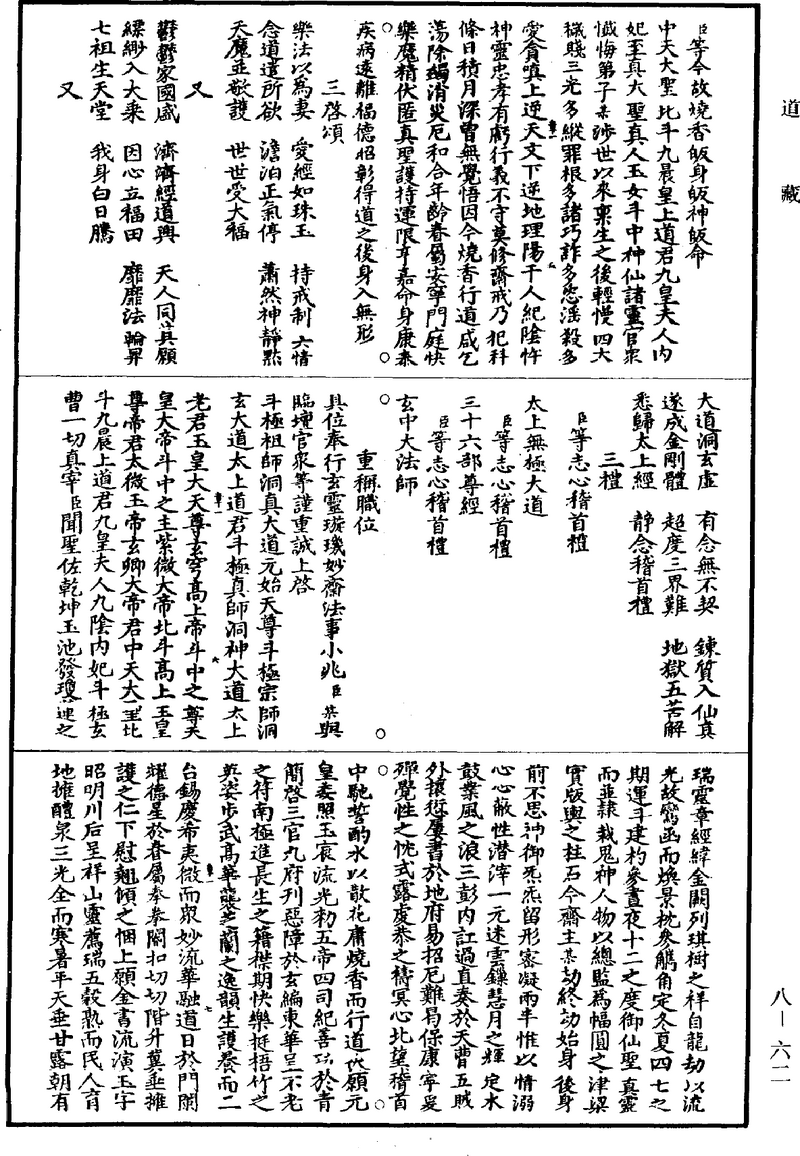 道藏
臣等今故燒香皈身皈神皈命
中天大聖北斗九晨皇上道君九皇夫人內
妃至真大聖真人玉女斗中神仙諸靈官眾
懺悔弟子某涉世以來稟生之後輕慢四大
穢賤三光多縱罪根多諸巧詐多恣淫殺多
愛貪嗔上逆天文下逆地理陽干人紀陰忤
神靈忠孝有虧行義不守莫修齋戒乃犯科
條日積月深曾無覺悟因今燒香行道咸乞
蕩除蠲消災厄和合年齡眷屬安寧門庭快
樂魔精伏匿真聖護持運限亨嘉命身康泰
疾病遠離福德昭彰得道之後身入無形
三啓頌
樂法以為妻 愛經如珠玉 持戒制六情
念道遣所欲 澹泊正氣停 蕭然神靜默
天魔並敬護 世世受大福
又
鬱鬱家國盛 濟濟經道興 天人同其願
縹緲入大乘 因心立福田 靡靡法輪昇
七祖生天堂 我身白日騰
又
大道洞玄虛 有念無不契 鍊質入仙真
遂成金剛體 超度三界難 地獄五苦解
悉歸太上經 靜念稽首禮
三禮
臣等志心稽首禮
太上無極大道
臣等志心稽首禮
三十六部尊經
臣等志心稽首禮
玄中大法師
重稱職位
具位奉行玄靈璇璣妙齋法事小兆臣某與
臨壇官眾等謹重誠上啓
斗極祖師洞真大道元始天尊斗極宗師洞
玄大道太上道君斗極真師洞神大道太上
老君玉皇大天尊玄穹高上帝斗中之尊天
皇大帝斗中之主紫微大帝北斗高上玉皇
尊帝君太微玉帝玄卿大帝君中天大聖北
斗九晨上道君九皇夫人九陰內妃斗極玄
曹一切真宰臣聞聖佐乾坤玉池發瓊蓮之
瑞靈章經緯金闕列琪樹之祥自龍劫以流
光故鸞函而煥景枕參觿角定冬夏四七之
期運斗建杓參晝夜十二之度御仙聖真靈
而亞隷栽鬼神人物以總監為幅圓之津梁
實版輿之柱石今齋主某劫終劫始身後身
前不思神御炁炁留形寧凝兩半惟以情溺
心心蔽性潛滓一元迷雲鏁慧月之輝定水
鼓業風之浪三彭內訌過直奏於天曹五賊
外攘愆屢書於地府易招厄難曷保康寧爰
殫覺性之忱式露虔恭之禱冥心北望稽首
中馳誓酌水以散花庸燒香而行道伏願元
皇委照玉宸流光勑五帝四司紀善功於青
簡啓三官九府刊惡障於玄編東華呈不老
之符南極進長生之籍椿期快樂挺梧竹之
英姿步武高華襲芝蘭之逸韻生護養而二
台錫慶希夷微而眾妙流華融道日於門闌
耀德星於眷屬拳拳閫扣切切階升冀垂擁
護之仁下慰翹傾之悃上願金書流演玉字
昭明川后呈祥山靈薦瑞五穀熟而民人育
地擁醴泉三光全而寒暑平天垂甘露朝有
八一六二